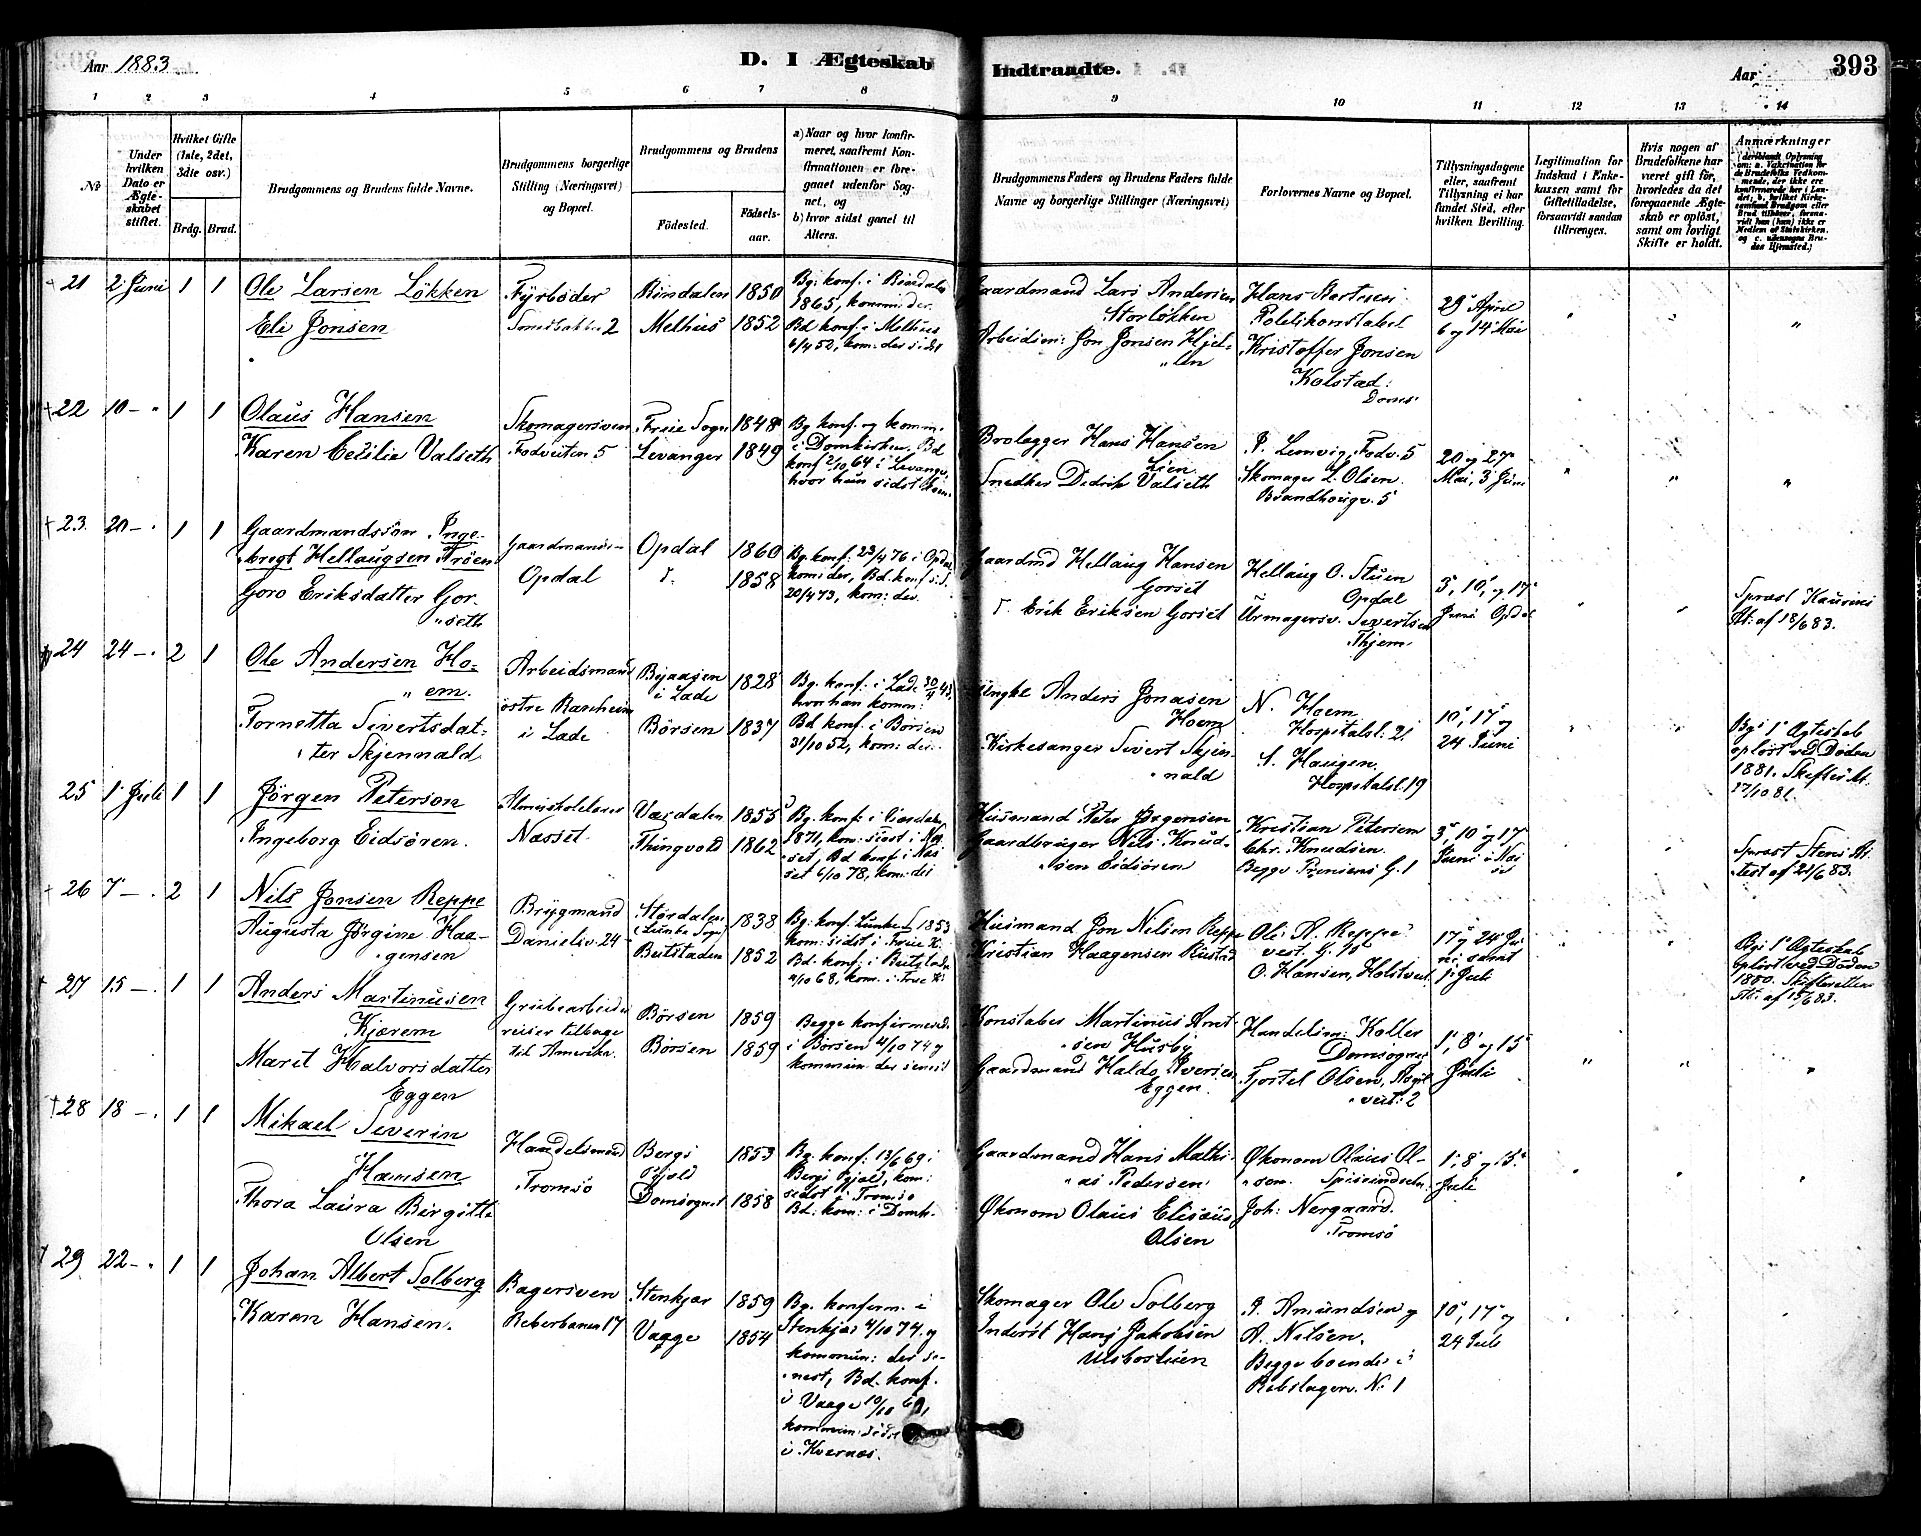 Aar 1883. D. I Ægteskab Indtraadte. Aar 393
1 2 3 4 5 6 7 8 9 10 11 12 13 14
No
Under hvilken Dato er Ægteskabet stiftet.
Hvilket Gifte (1ste, 2det, 3die osv.)
Brdg. Brud.
Brudgommens og Brudens fulde Navne.
Brudgommens borgerlige Stilling (Næringsvei) og Bopæl.
Brudgommens og Brudens
Fødested. Fødselsaar.
a) Naar og hvor konfirmeret, saafremt Konfirmationen er foregaaet udenfor Sognet, og
b) hvor sidst gaaet til Alters.
Brudgommens Faders og Brudens Faders fulde Navne og borgerlige Stillinger (Næringsvei)
Forlovernes Navne og Bopæl.
Tillysningsdagene eller, saafremt Tillysning ei har fundet Sted, efter hvilken Bevilling.
Legitimation for Indskud i Enkekassen samt for Giftetilladelse, forsaavidt saadan tiltrænges.
Hvis nogen af Brudefolkene har været gift før, hvorledes da det foregaaende Ægteskab er opløst, samt om lovligt Skifte er holdt.
Anmærkninger
21 2 Juni 1 1
Ole Larsen Løkken
Eli Jonsen
Fyrbøder
Rindalen 1850
Melhus 1852
Bg. konf. i Rindalen
1865, komm: der.
Bd konf. i Melhus
6/4 52, kom: der sidst
Gaardmand Lars Andersen
Storløkken
Arbeidsm: Jon Jonsen Hjel-
len
Hans Stortuen
Politikonstabel
Kristoffer Jonsen
Kolstad:
Doms
29 April
6 og 14 Mai
22 10 - 1 1
Olaus Hansen
Karen Cecilie Valseth
Skomagersven
Fodveiten 5
Freie Sogn 1848
Levanger 1849
Bg konf. og komm.
i Domkirken. Bd
konf 2/10 64 i Levanger,
hvor hun sidst
Brolegger Hans Hansen
Lien
Snedker Didrik Valseth
P. Lemvig, Fodv. 5
Skomager L. Olsen.
Brandhougv. 5
20 og 27
Mai, 3 Juni
23. 20 - 1 1
Gaardmandssøn Inge-
brigt Hellaugsen Trøen
Goro Eriksdatter Gor-
seth
Gaardmands-
Opdal
Opdal 1860
1858
Bg. konf: 23/4 76 i Opdal
kom: der, Bd. konf s. S.
20/4 73, kom: der.
Gaardmd Hellaug Hansen
Gorset
Erik Eriksen Gorset
Hellaug O. Stuen
Opdal
Urmagersv. Sivertsen
Thjem
3, 10, og 17
Juni Opdal
At: af 18/6 83.
24 24 - 2 1
Ole Andersen Ho-
em.
Tornetta Sivertsdat-
ter Skjennald
Arbeidsmand
østre Ranheim
i Lade
i Lade 1828
Børsen 1837
Bg. konf: i Lade
hvor han komm:
Bd konf. i Børsen
31/10 52, kom: der.
Anders Jonasen
Hoem
Kirkesanger Sivert Skjen-
nald
N. Hoem
Hospitalsl. 21
S. Haugen.
Hospitalsl. 19
10, 17 og
24 Juni
Bgs 1ste Ægteskab
opløst ved Døden
1881. Skifter At.
17/10 81.
25 1 Juli 1 1
Jørgen Peterson
Ingeborg Eidsøren.
Almueskolelærer
Næsset.
Værdalen 1855
Thingvold 1862
Bg. konf: i Værdalen
1871, kom: sidst i Næs
set, Bd konf. i Næs
set 6/10 78, kom: der
Husmand Peter Jørgensen
Gaardbruger Nils Knud-
sen Eidsøren
Kristian Petersen
Chr. Knudsen.
Begge Prinsens G. 1
3, 10 og 17
Juni i Næs
set
26 7 - 2 1
Nils Jonsen Reppe
Augusta Jørgine Haa-
gensen
Brygmand
Danielsv. 24
Størdalen 1838
Beitstaden 1852
Husmand Jon Nilsen Reppe
Kristian Haagensen Rustad
Ole A. Reppe
vest. G. 10
O. Hansen, Holstveit
17 og 24 Ju
ni samt
1 Juli
Bgs 1ste Ægteskab
opløst ved Døden
1880. Skifterettens
At: af 15/6 83.
27 15 - 1 1
Anders Martinusen
Kjærem
Marit Halvorsdatter
Eggen
Grubearbeider
reiser tilbage
til Amerika.
Børsen 1859
Børsen 1859
Begge konfirmered
i Børsen 4/10 74 og
kommun: der senest
Konstabel Martinus Arnt-
sen Husby
Gaardmand Halvor Iversen
Eggen
Handelsm: Koller
Domsognet
Tostel Olsen,
veit: 2
1, 8 og 15
Juli
28 18 - 1 1
Mikael Severin
Hansen
Thora Laura Birgitte
Olsen
Handelsmand
Tromsø
Bergs
Fjold 1853
Domsognet 1858
Bg. konf: 13/6 69 i
Bergs Fjold, kom:
sidst i Tromsø
Bd: kom: i Domk.
Gaardmand Hans Mathi-
as Pedersen
Økonom Olaus Elisæus
Olsen
Økonom Olaus Ol-
sen.
Joh: Nergaard.
Tromsø
1, 8 og 15.
Juli
29 22 - 1 1
Johan Albert Solberg
Karen Hansen.
Bagersven
Reberbanen 17
Stenkjær 1859
Vaage 1854
Bg. konferm. i
Stenkjær 4/10 74. og
kommun: der se-
nest, Bd. konf.
i Vaage 10/10 69,
kommun: sidst
i Kvernæs.
Skomager Ole Solberg
Inderst Hans Jakobsen
P. Amundsen og
A. Nilsen,
Begge boende i
Rebslagerv. No 1
10, 17 og
24 Juli